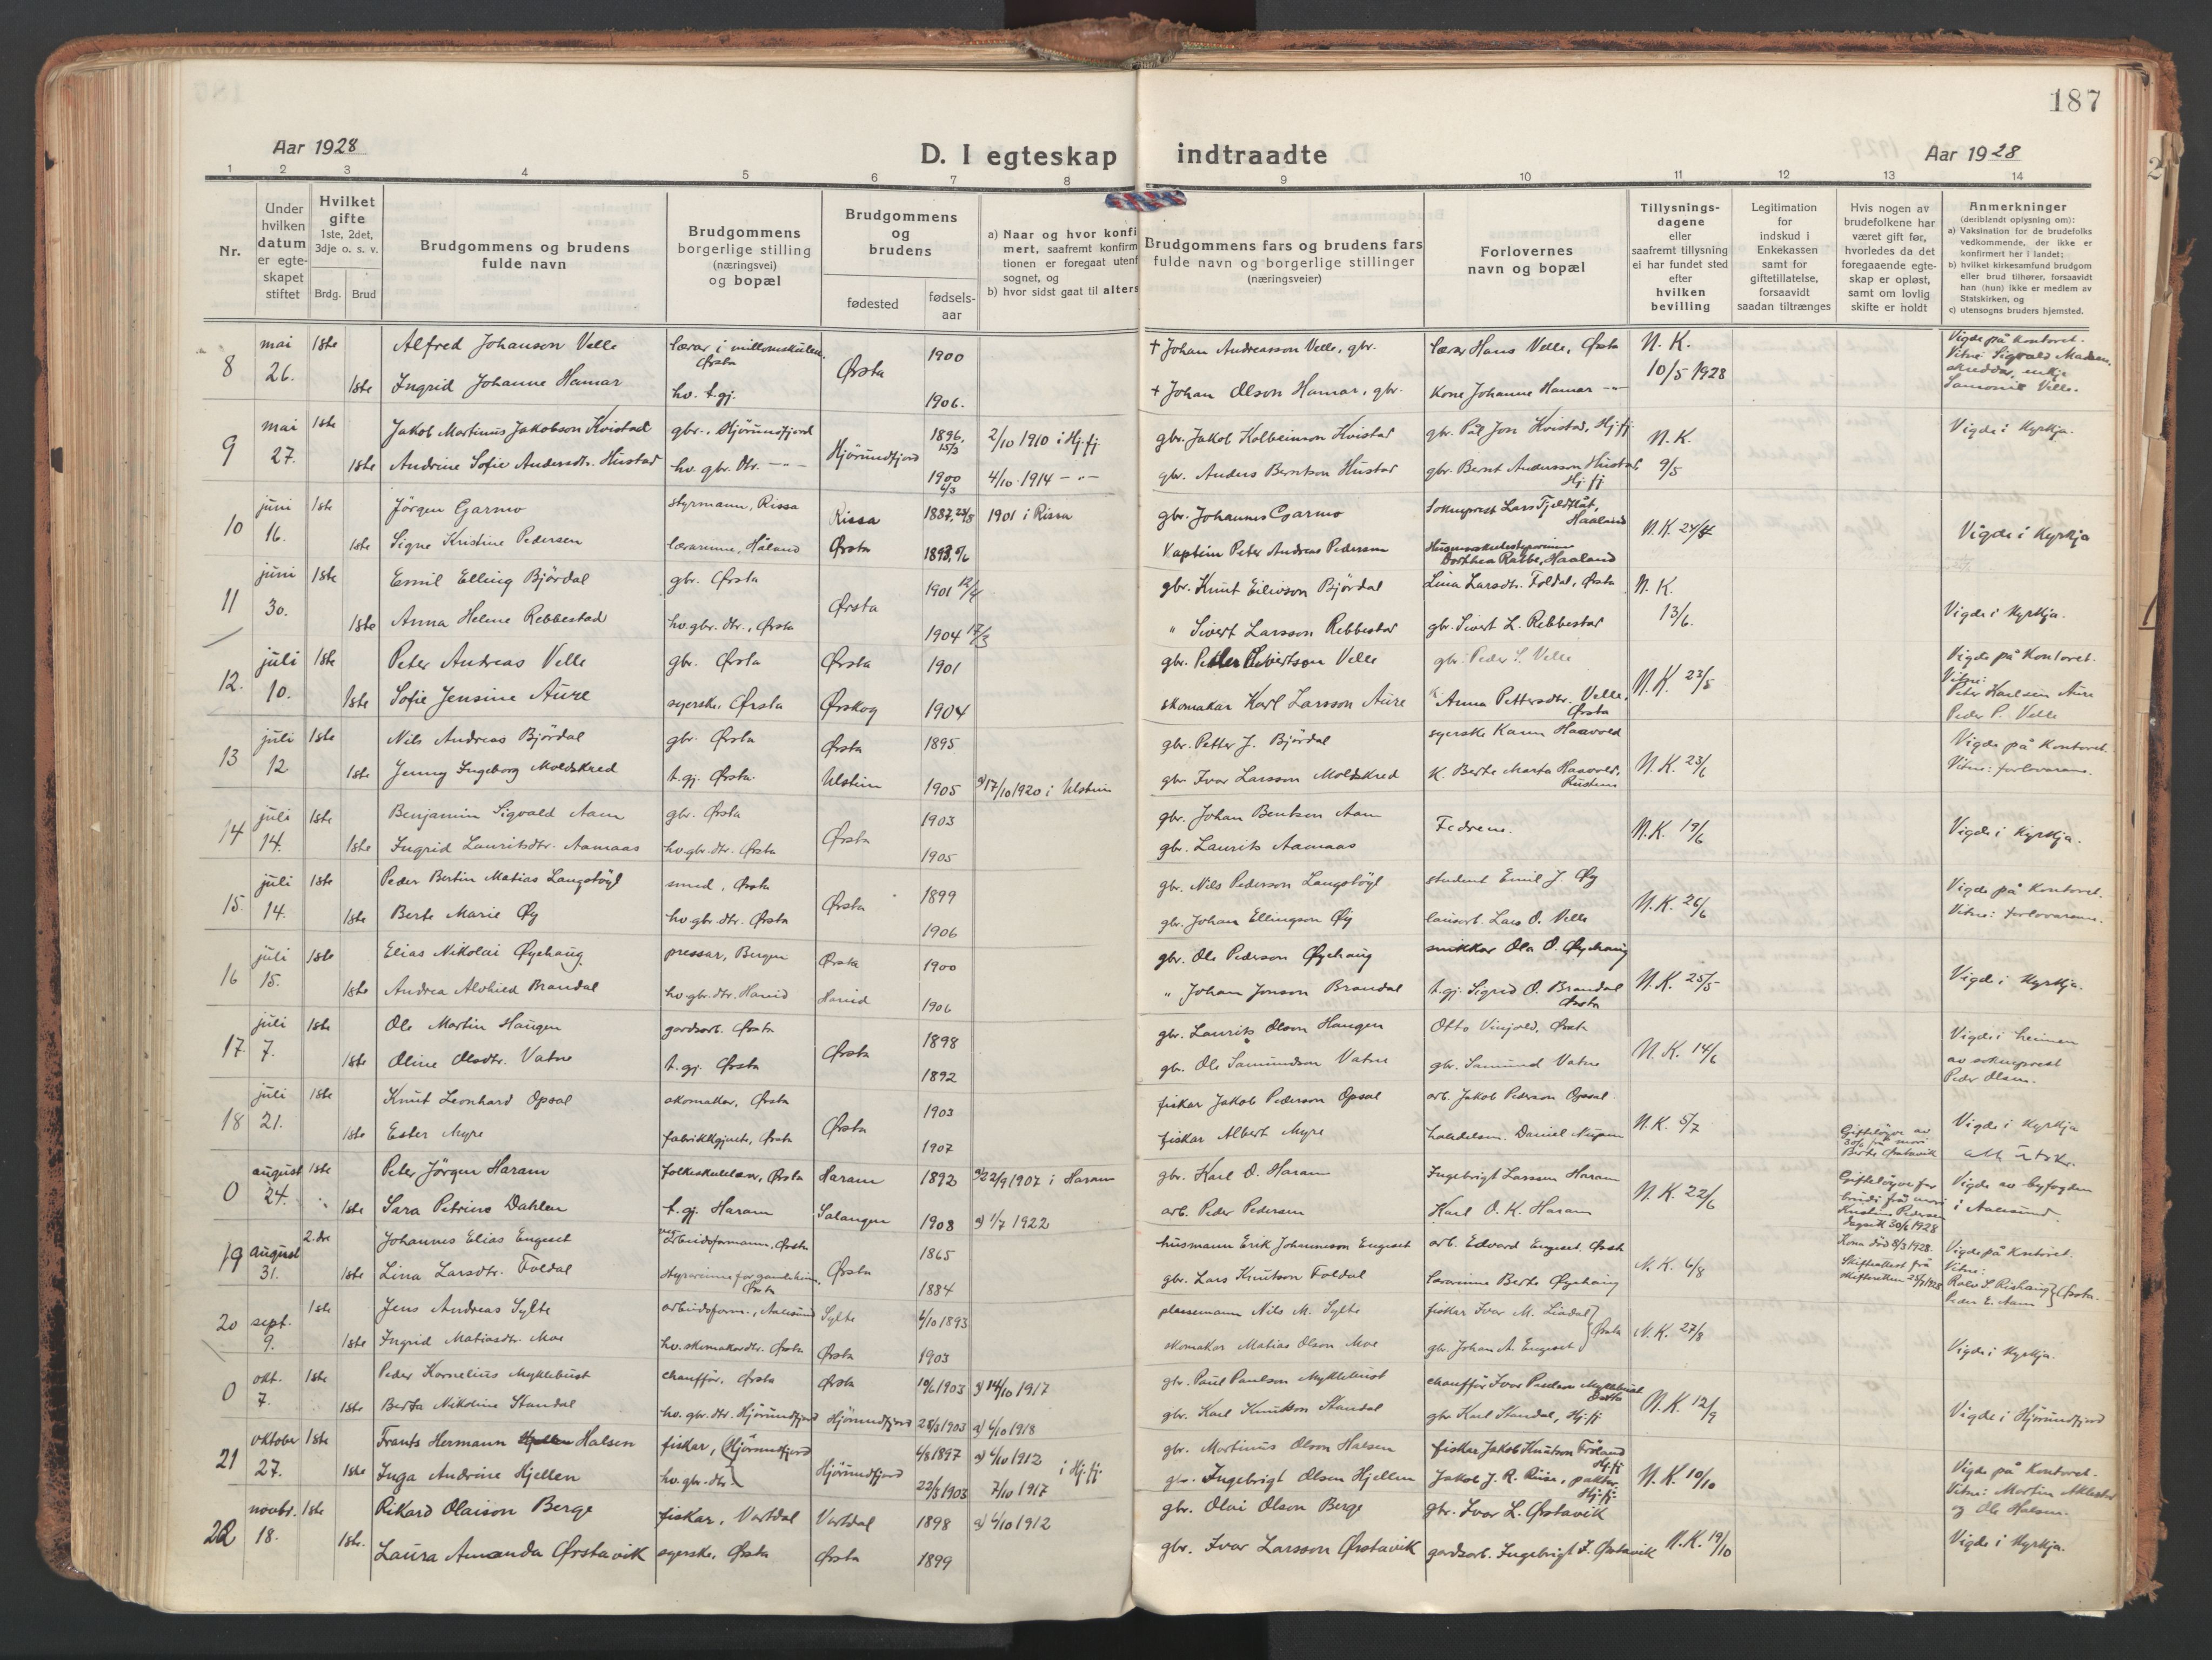 187
Aar 1928
D. I egteskap indtraadte
Aar 1928
1 2 3 4 5 6 7 8 9 10 11 12 13 14
Nr.
Under hvilken datum er egteskapet stiftet
Hvilket gifte 1ste, 2det, 3dje o. s. v.
Brdg. Brud
Brudgommens og brudens fulde navn
Brudgommens borgerlige stilling (næringsvei) og bopæl
Brudgommens og brudens
fødested
fødsels-aar
a) Naar og hvor konfi
mert, saafremt konfirm
tionen er foregaat utenf
sognet, og
b) hvor sidst gaat til alters
Brudgommens fars og brudens fars fulde navn og borgerlige stillinger (næringsveier)
Forlovernes navn og bopæl
Tillysnings-dagene eller saafremt tillysning ei har fundet sted efter hvilken bevilling
Legitimation for indskud i Enkekassen samt for giftetillatelse, forsaavidt saadan tiltrænges
Hvis nogen av brudefolkene har været gift før, hvorledes da det foregaaende egteskap er opløst, samt om lovlig skifte er holdt
Anmerkninger
(deriblandt oplysning om):
a) Vaksination for de brudefolks vedkommende, der ikke er konfirmert her i landet;
b) hvilket kirkesamfund brudgom eller brud tilhører, forsaavidt han (hun) ikke er medlem av Statskirken, og
c) utensogns bruders hjemsted.
8 mai 26. 1ste Alfred Johanson Velle lærar i millomskulen, Ørsta Ørsta 1900 † Johan Andreasson Velle, gbr. lærar Hans Velle, Ørsta N. K. 10/5 1928 Vigde på kontoret. Vitne: Sigvald Madsen, skreddar, enkje Samonie Velle.
1ste Ingrid Johanne Hamar hv. t.gj. 1906. † Johan Olson Hamar, gbr. Kone Johanne Hamar -"-
9 mai 27. 1ste Jakob Martinus Jakobson Kvistad gbr., Hjørundfjord Hjørundfjord 1896, 15/3 2/10 1910 i Hj.fj. gbr. Jakob Kolbeinson Kvistad gbr. Pål Jon Kvistad, Hj.fj N. K. 9/5 Vigde i kyrkja.
1ste Andrine Sofie Andersdtr. Hustad hv. gbr. dtr. -"- 1900 6/3 4/10 1914 -"- gbr. Anders Berntson Hustad gbr. Bernt Andersson Hustad, Hj.fj
10 juni 16. 1ste Jørgen Garmo styrmann, Rissa Rissa 1887, 28/8 1901 i Rissa gbr. Johannes Garmo Sokneprest Lars Fjeldtlåt, Haaland N.K. 24/4 Vigde i Kyrkja
1ste Signe Kristine Pedersen lærarinne, Håland Ørsta 1893, 5/6 Kaptein Peter Andreas Pedersen Dorthea Rabbe, Haaland
11 juni 30. 1ste Emil Elling Bjørdal gbr. Ørsta Ørsta 1901 12/4 gbr. Knut Eilivson Bjørdal Lina Larsdtr. Foldal, Ørsta N. K. 13/6. Vigde i kyrkja.
1ste Anna Helene Rebbestad hv. gbr. dtr., Ørsta 1904 17/3 " Sivert Larsson Rebbestad gbr. Sivert L. Rebbestad
12. juli 10. 1ste Peter Andreas Velle gbr. Ørsta Ørsta 1901 gbr. Petter Sivertson Velle gbr. Peder S. Velle N.K. 23/5 Vigde på kontoret. Vitne: Peter Karlsen Aure Peder P. Velle
1ste Sofie Jensine Aure syerske, Ørsta Ørskog 1904 skomakar Karl Larsson Aure K. Anna Pettersdtr. Velle, Ørsta
13 juli 12 1ste Nils Andreas Bjørdal gbr. Ørsta Ørsta 1895 gbr. Petter J. Bjørdal syerske Karen Haavold N.K. 23/6 Vigde på kontoret. Vitne: forlovarane.
1ste Jenny Ingeborg Moldskred t.gj. Ørsta Ulstein 1905 a) 17/10 1920 i Ulstein gbr. Ivar Larsson Moldskred K. Berte Marta Haavold,
14 juli 14. 1ste Benjamin Sigvald Aam gbr. Ørsta Ørsta 1903 gbr. Johan Bentsen Aam Fedrene. N.K. 19/6 Vigde i Kyrkja.
1ste Ingrid Lauritsdtr. Aamaas hv.gbr.dtr. Ørsta 1905 gbr. Laurits Aamaas
15. juli 14. 1ste Peder Bertin Matias Langstøyl smed, Ørsta Ørsta 1899 gbr. Nils Pederson Langstøyl student Emil J. Øy N.K. 26/6 Vigde på kontoret. Vitne: forlovarane.
1ste Berte Marie Øy hv.gbr.dtr. Ørsta 1906 gbr. Johan Ellingson Øy Lars O. Velle
16 juli 15. 1ste Elias Nikolai Øyehaug pressar, Bergen Ørsta 1900 gbr. Ole Pederson Øyehaug snikkar Ola O. Øyehaug N.K. 25/5 Vigde i kyrkja.
1ste Andrea Alvhild Brandal hv.gbr.dtr. Hareid Hareid 1906 " Johan Jonson Brandal t.gj. Sigrid O. Brandal Ørsta
17 juli 7. 1ste Ole Martin Haugen gardsarb. Ørsta Ørsta 1898 gbr. Laurits Olson Haugen Otto Vinjevold, Ørsta N.K. 14/6 Vigde i heimen av sokneprest Peder Olsen.
1ste Oline Olsdtr. Vatne t.gj. Ørsta 1892 gbr. Ole Samundson Vatne gbr. Samund Vatne
18 juli 21. 1ste Knut Leonhard Opsal skomakar, Ørsta Ørsta 1903 fiskar Jakob Pederson Opsal arb. Jakob Pederson Opsal N.K. 5/7 Vigde i kyrkja
1ste Ester Myre fabrikkgjente, Ørsta 1907 fiskar Albert Myre Daniel Gifteløyve av 30/6 frå mori Berte Ørstavik
0 august 24. 1ste Peter Jørgen Haram folkeskulelærar, Ørsta Haram 1892 a) 22/9 1907 i Haram gbr. Karl O. Haram Ingebrigt Larssen Haram N.K. 22/6 Gifteløyve for brudi frå mori Kristine Pedersen 30/6 1928 Vigde av byfogden i Aalesund.
1ste Sara Petrine Dahlen t.gj. Haram Salangen 1908 a) 1/7 1922 arb. Peder Pedersen Karl O. K. Haram
19 august 31. 2.dre Johannes Elias Engeset vegarbeidsformann, Ørsta Ørsta 1865 husmann Erik Johanneson Engeset arb. Edvard Engeset, Ørsta N.K. 6/8 Kona død 8/3 1928. Skifteattest frå skifteretten 1928 Vigde på kontoret. Vitne: Peder E. Aam } Ørsta.
1ste Lina Larsdtr. Foldal styrarinne for gamleheim, Ørsta 1884 gbr. Lars Knutson Foldal lærarinne Berte Øyehaug
20 sept. 9. 1ste Jens Andreas Sylte arbeidsform., Aalesund Sylte 4/10 1893 plassemann Nils M. Sylte fiskar Ivar M. Liadal } Ørsta N.K. 27/8 Vigde i kyrkja.
1ste Ingrid Matiasdtr. Moe hv. skomakardtr. Ørsta Ørsta 1903 skomakar Matias Olson Moe gbr. Johan A. Engeset
0 okt. 7. 1ste Peder Kornelius Myklebust chauffør, Ørsta Ørsta 10/6 1903 a) 14/10 1917 gbr. Paul Paulson Myklebust chauffør Ivar Paulson Myklebust Ørsta N.K. 12/9 Vigde i Hjørundfjord
1ste Berta Nikoline Standal hv. gbr. dtr. Hjørundfjord Hjørundfjord 28/3 1903 a) 6/10 1918 gbr. Karl Knutson Standal gbr. Karl Standal, Hj.fj
21 oktober 27. 1ste Frants Hermann Halsen fiskar, Hjørundfjord Hjørundfjord 4/8 1897 a) 6/10 1912 i Hj.fj. gbr. Martinus Olson Halsen fiskar Jakob Knutson Frøland Hj.fj N.K. 10/10 Vigde på kontoret. Vitne: Martin og Ole Halsen.
1ste Inga Andrine Hjellen hv. gbr. dtr. 22/3 1903 7/10 1917 gbr. Ingebrigt Olsen Hjellen Jakob J. R. Hj.fj.
22 novbr. 18. 1ste Rikard Olaison Berge fiskar, Vartdal Vartdal 1898 a) 6/10 1912 gbr. Olai Olson Berge gbr. Ivar L. Ørstavik N.K. 19/10 Vigde i kyrkja.
1ste. Laura Amanda Ørstavik syerske, Ørsta Ørsta 1899 gbr. Ivar Larsson Ørstavik gardsarb. Ingebrigt I. Ørstavik